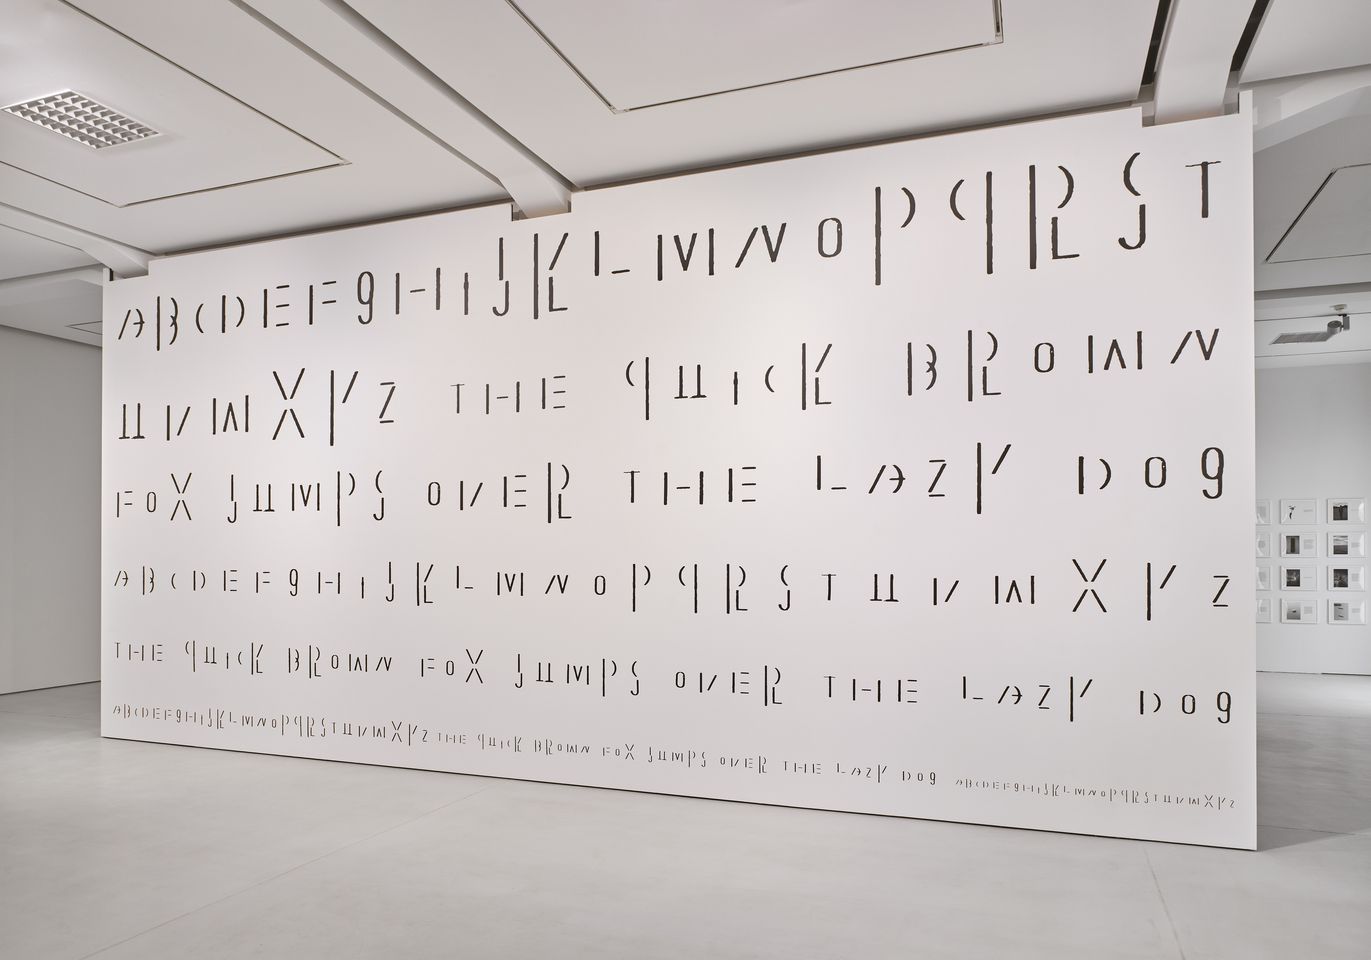 A B C D E F g H I J K L M N O P Q R S T
U V W X Y Z THE QUICK BROWN
FOX JUMPS OVER THE LAZY DOg
A B C D E F g H I J K L M N O P Q R S T U V W X Y Z
THE QUICK BROWN FOX JUMPS OVER THE LAZY DOg
A B C D E F g H I J K L M N O P Q R S T U V W X Y Z THE QUICK BROWN FOX JUMPS OVER THE LAZY DOg A B C D E F g H I J K L M N O P Q R S T U V W X Y Z